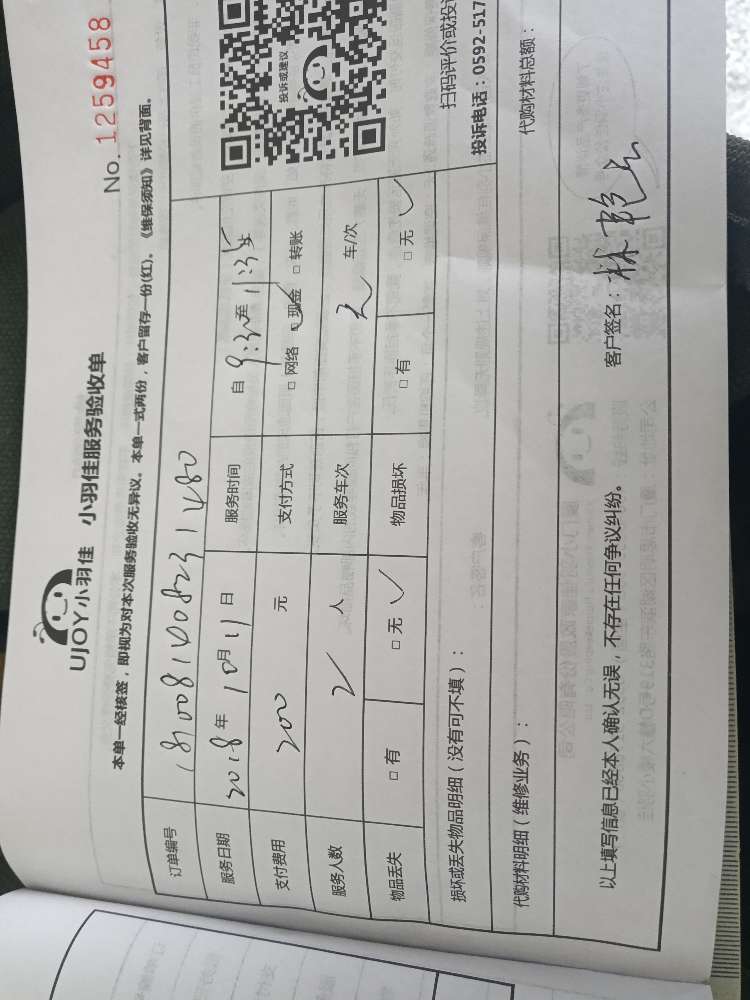 UJOY小羽佳 小羽佳服务验收单
No. 1259458
本单一经核签，即视为对本次服务验收无异议。本单一式两份，客户留存一份(红)。《维保须知》详见背面。
订单编号
服务日期 2018年10月11日 服务时间 自9:30至11:35
支付费用 200 元 支付方式 □网络 □现金 □转账
服务人数 2 人 服务车次 无 车/次
物品丢失 □有 □无 ✓ 物品损坏 □有 □无 ✓
投诉或建议
扫码评价或投
投诉电话：0592-517
损坏或丢失物品明细（没有可不填）：
代购材料明细（维修业务）： 代购材料总额：
以上填写信息已经本人确认无误，不存在任何争议纠纷。 客户签名：